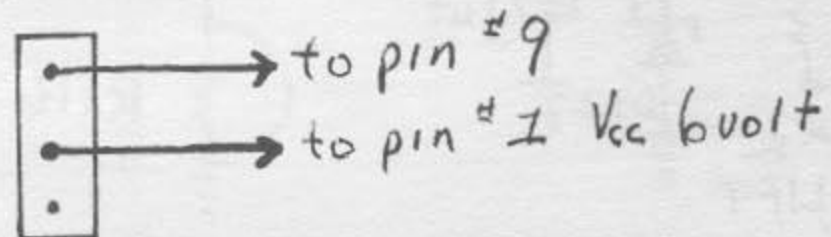 to pin #9
to pin #1 Vcc 6volt